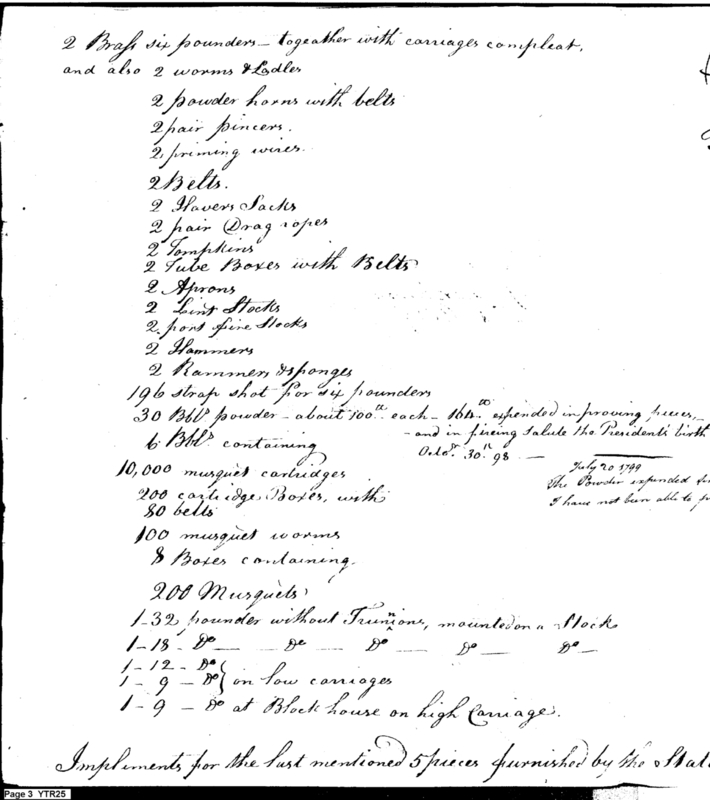 2 Brass six pounders – togeather with carriages compleat,
and also 2 worms & Ladles
2 powder horns with belts
2 pair pincers.
2 priming wires.
2 Belts.
2 Havers Sacks
2 pair Drag ropes
2 Tompkins
2 Tube Boxes with Belts
2 Aprons
2 Lint Stocks
2 port fire Stocks
2 Hammers
2 Rammers & sponges
196 strap shot for six pounders
30 Bbls powder – about 100lb each – 164lb expended in proving pieces,
– and in fireing Salute the Presidents birth
Octor. 30th 98. —
6 Bbls containing
10,000 musquet cartridges
July 20 1799
The Powder expended
I have not been able to
200 cartridge Boxes, with
80 belts
100 musquet worms
8 Boxes containing
200 Musquets
1 – 32 pounder without Trunnions, mounted on a Stock
1 – 18 – Do — — Do — Do — Do — Do —
1 – 12 – Do
1 – 9 – Do } on low carriages
1 – 9 – Do at Block house on high Carriage.
Impliments for the last mentioned 5 pieces furnished by the
Page 3 YTR25